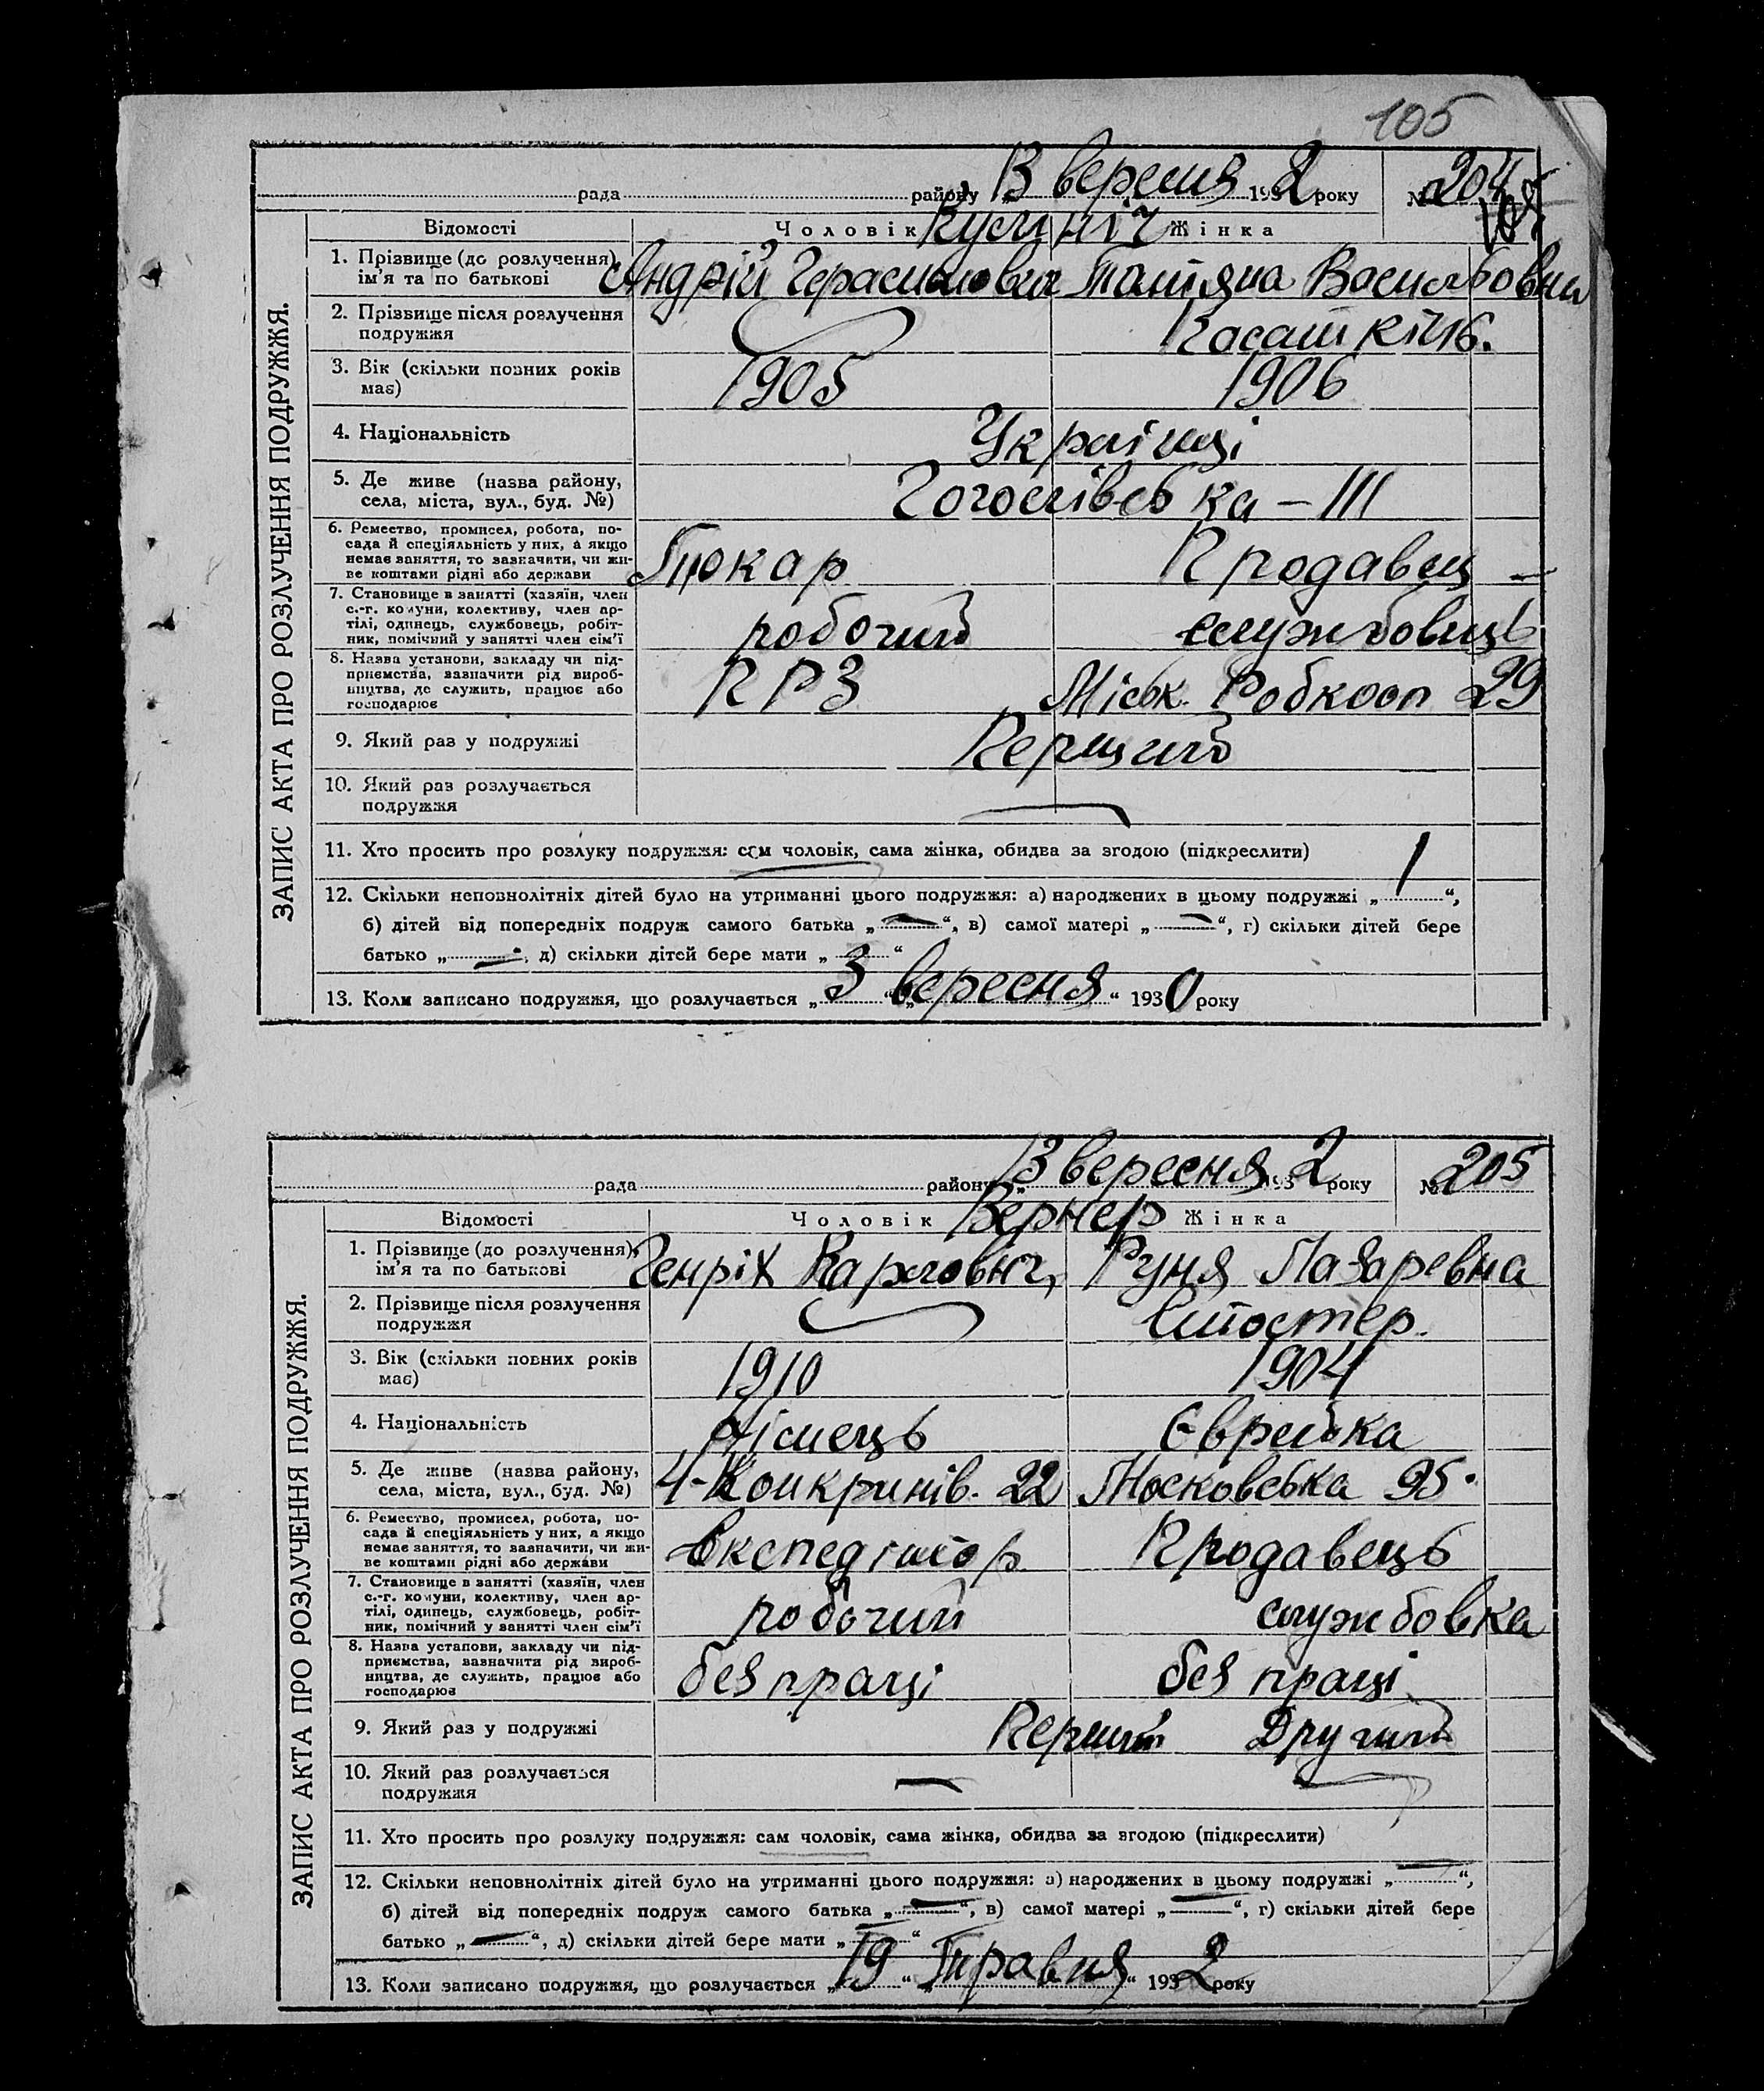 105
рада района „13 вересня 1932 року № 204
Відомості Чоловік Кулініч Жінка
1. Прізвище (до розлучення), ім'я та по батькові Андрій Герасимович Татяна Васильовна
2. Прізвище після розлучення подружжя Касаткіна.
3. Вік (скільки повних років має) 1905 1906
4. Національність Українці
5. Де живе (назва району, села, міста, вул., буд. №) Гоголівська – 111
6. Ремество, промисел, робота, посада й спеціяльність у них, а якщо немає заняття, то зазначити, чи живе коштами рідні або держави Токар Продавец
7. Становище в занятті (хазяїн, член с.-г. комуни, колективу, член артілі, одинець, службовець, робітник, помічний у занятті член сім'ї робочий службовиць
8. Назва установи, закладу чи підприємства, зазначити рід виробництва, де служить, працює або господарює ПРЗ Міськ. Робкооп 29
9. Який раз у подружжі Перший
10. Який раз розлучається подружжя —
11. Хто просить про розлуку подружжя: сам чоловік, сама жінка, обидва за згодою (підкреслити)
12. Скільки неповнолітніх дітей було на утриманні цього подружжя: а) народжених в цьому подружжі „ 1 “,
б) дітей від попередніх подруж самого батька „ — “, в) самої матері „ — “, г) скільки дітей бере
батько „ — “, д) скільки дітей бере мати „ “
13. Коли записано подружжя, що розлучається „ 3 “ „ вересня “ 1930 року
ЗАПИС АКТА ПРО РОЗЛУЧЕННЯ ПОДРУЖЖЯ.
рада району „13 вересня 1932 року № 205
Відомості Чоловік Вернер Жінка
1. Прізвище (до розлучення), ім'я та по батькові Генріх Карлович, Руня Лазаревна
2. Прізвище після розлучення подружжя
3. Вік (скільки повних років має) 1910 1904
4. Національність Німець Єврейка
5. Де живе (назва району, села, міста, вул., буд. №) 22 Московська 95.
6. Ремество, промисел, робота, посада й спеціяльність у них, а якщо немає заняття, то зазначити, чи живе коштами рідні або держави Експедітор Продавець
7. Становище в занятті (хазяїн, член с.-г. комуни, колективу, член артілі, одинець, службовець, робітник, помічний у занятті член сім'ї робочий службовка
8. Назва установи, закладу чи підприємства, зазначити рід виробництва, де служить, працює або господарює без праці без праці
9. Який раз у подружжі Перший Другий
10. Який раз розлучається подружжя —
11. Хто просить про розлуку подружжя: сам чоловік, сама жінка, обидва за згодою (підкреслити)
12. Скільки неповнолітніх дітей було на утриманні цього подружжя: а) народжених в цьому подружжі „ — “,
б) дітей від попередніх подруж самого батька „ — “, в) самої матері „ — “, г) скільки дітей бере
батько „ — “, д) скільки дітей бере мати „ “
13. Коли записано подружжя, що розлучається „ 19 “ „ Травня “ 1932 року
ЗАПИС АКТА ПРО РОЗЛУЧЕННЯ ПОДРУЖЖЯ.